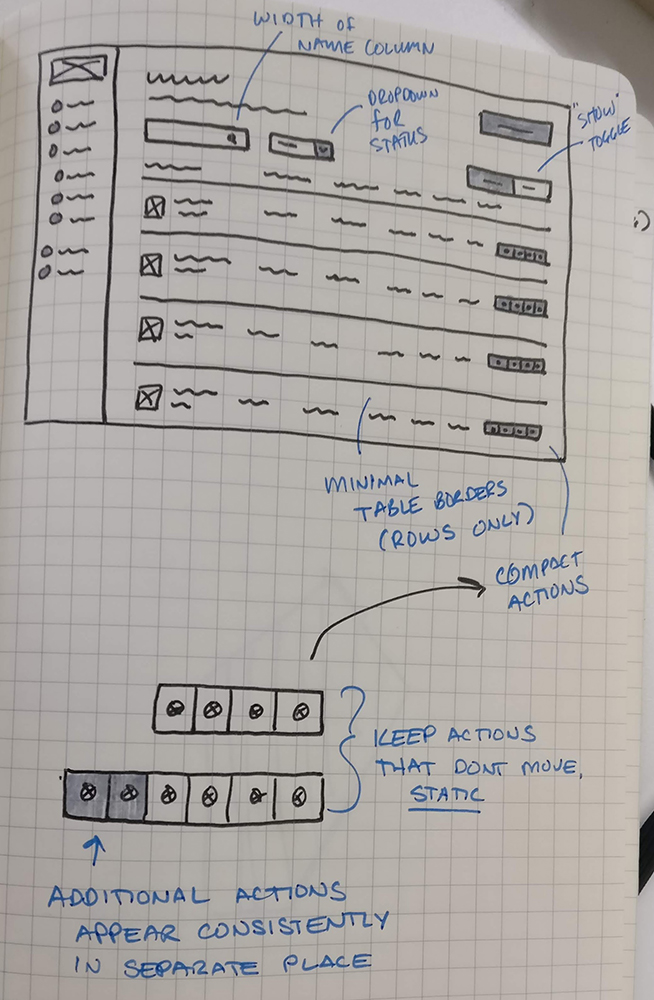 WIDTH OF
NAME COLUMN
DROPDOWN
FOR
STATUS
"SHOW"
TOGGLE
MINIMAL
TABLE BORDERS
(ROWS ONLY)
COMPACT
ACTIONS
KEEP ACTIONS
THAT DONT MOVE,
STATIC
ADDITIONAL ACTIONS
APPEAR CONSISTENTLY
IN SEPARATE PLACE